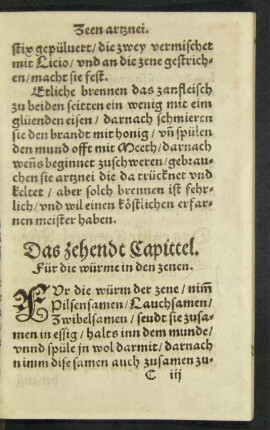 Zeen artznei.
stix gepüluert/die zwey vermischet
mit Licio/vnd an die zene gestrich-
en/macht sie fest.
Etliche brennen das zanfleisch
zu beiden seitten ein wenig mit eim
glüenden eisen/ darnach schmieren
sie den brandt mit honig/ vñ spülen
den mund offt mit Meeth/darnach
weñs beginnet zuschweren/gebrau-
chen sie artznei die da trücknet vnd
keltet / aber solch brennen ist fehr-
lich/vnd wil einen köstlichen erfar-
nen meister haben.
Das zehendt Capittel.
Für die würme in den zenen.
FVr die würm der zene/ nim̃
Pilsensamen/Lauchsamen/
Zwibelsamen/ seudt sie zusa-
men in essig/ halts inn dem munde/
vnnd spüle jn wol darmit/ darnach
nimm dise samen auch zusamen zu-
C iij